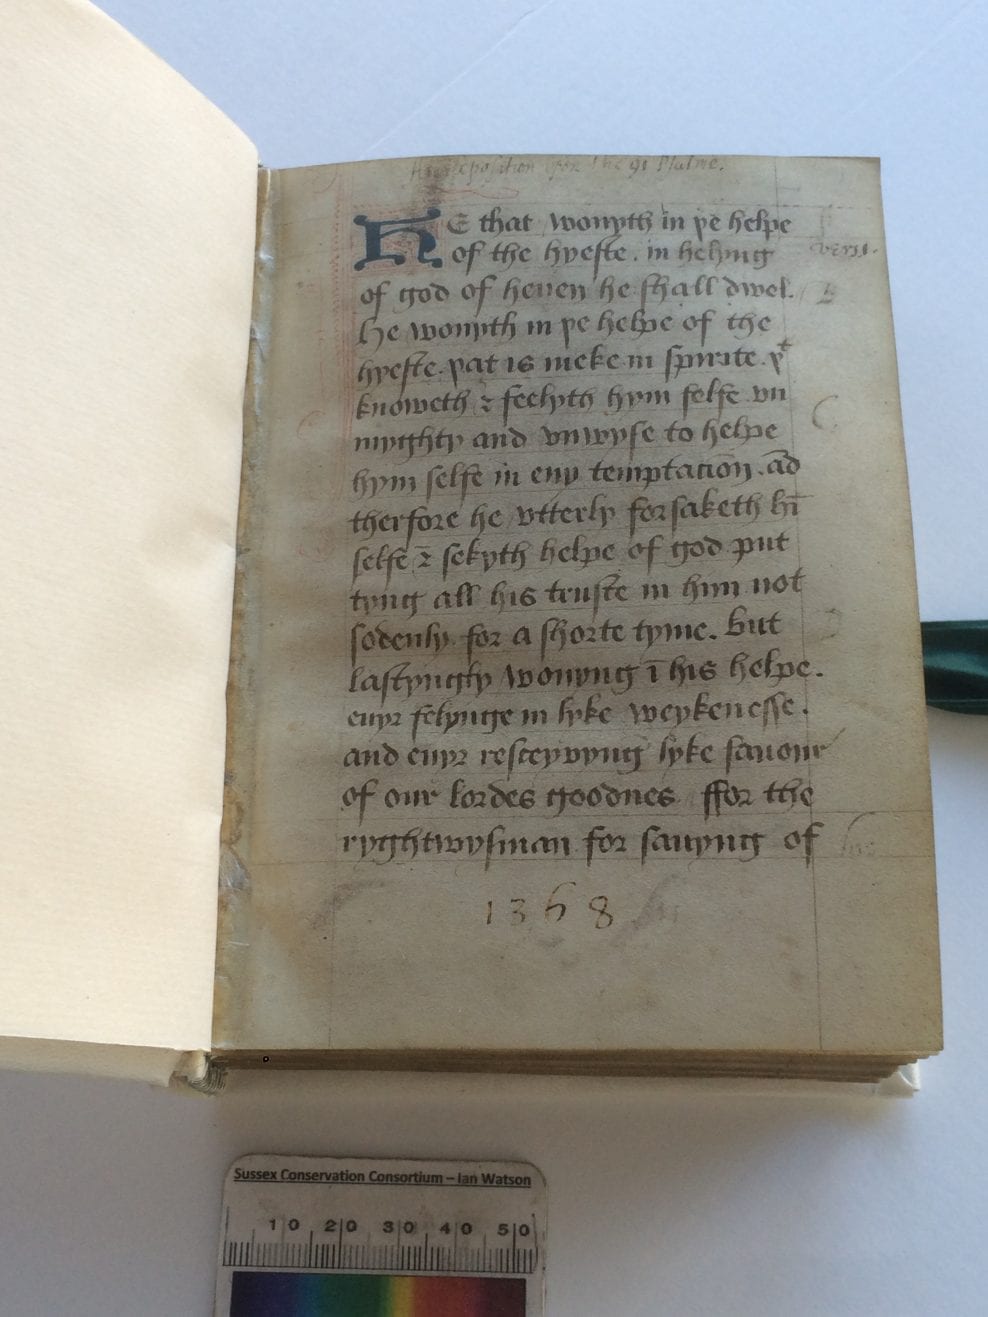 An exposition upon the 91 Psalme.
HE that wonyth in þe helpe
of the hyeste. in helyng
vers 1.
of god of heuen he shall dwel.
He wonyth in þe helpe of the
hyeste. þat is meke in spirite. þᵗ
knoweth ⁊ feelyth hym selfe vn
myghty and vnwyse to helpe
hym selfe in eny temptacīon. ād
therfore he vtterly forsaketh hī
selfe ⁊ sekyth helpe of god put
tyng all his truste in hym not
sodenly for a shorte tyme. But
lastyngly wonyng ī his helpe.
euyr felynge in lyke weykenesse.
and euyr resceyvyng lyke sauour
of our lordes goodnes ffor the
ryghtwysman for sauyng of
1368
Sussex Conservation Consortium – Ian Watson
10 20 30 40 50